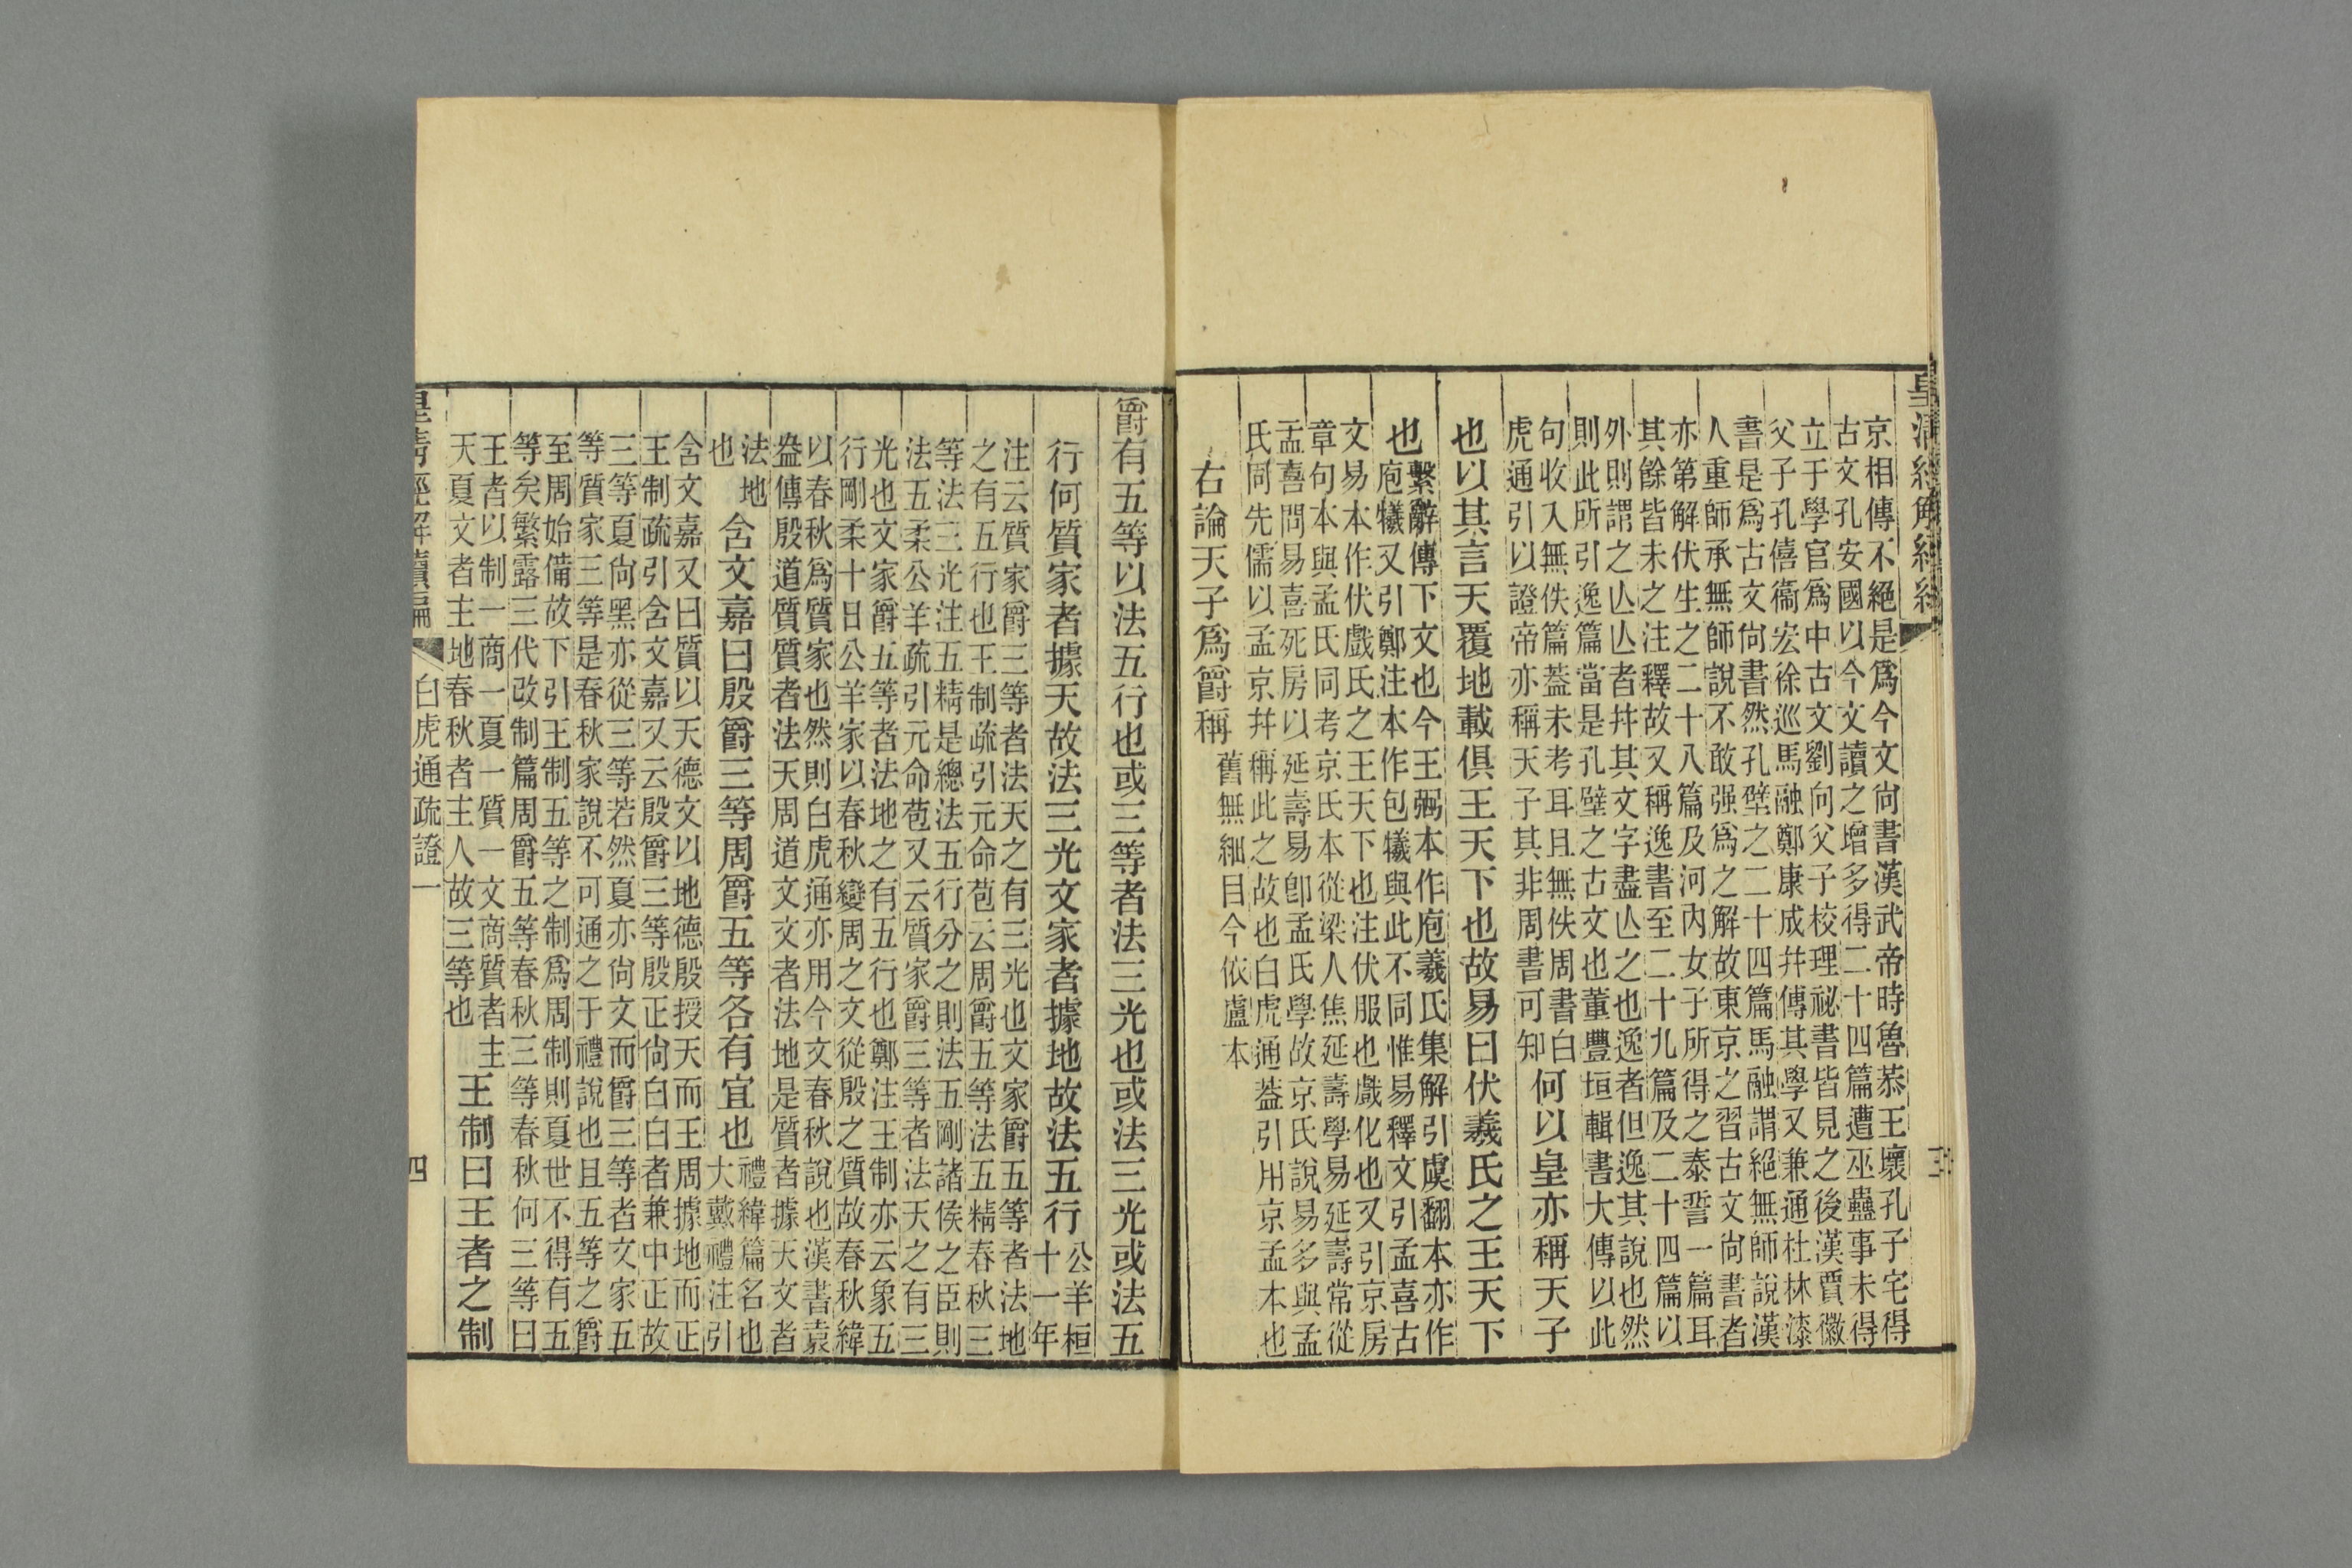 京相傳不絕是爲今文尙書漢武帝時魯恭王壞孔子宅得
古文孔安國以今文讀之增多得二十四篇遭巫蠱事未得
立于學官爲中古文劉向父子校理祕書皆見之後漢賈徽
父子孔僖衞宏徐巡馬融鄭康成幷傳其學又兼通杜林漆
書是爲古文尙書然孔壁之二十四篇馬融謂絕無師說漢
人重師承無師說不敢强爲之解故東京之習古文尙書者
亦第解伏生之二十八篇及河內女子所得之泰誓一篇耳
其餘皆未之注釋故又稱逸書至二十九篇及二十四篇以
外則謂之亾亾者幷其文字盡亾之也逸者但逸其說也然
則此所引逸篇當是孔壁之古文也董豐垣輯書大傳以此
句收入無佚篇蓋未考耳且無佚周書白
虎通引以證帝亦稱天子其非周書可知
何以皇亦稱天子
也以其言天覆地載俱王天下也故易曰伏羲氏之王天下
也
繫辭傳下文也今王弼本作庖羲氏集解引虞翻本亦作
庖犧又引鄭注本作包犧與此不同惟易釋文引孟喜古
文易本作伏戲氏之王天下也注伏服也戲化也又引京房
章句本與孟氏同考京氏本從梁人焦延壽學易延壽常從
孟喜問易喜死房以延壽易卽孟氏學故京氏說易多與孟
氏同先儒以孟京幷稱此之故也白虎通蓋引用京孟本也
右論天子爲爵稱
舊無細目今依盧本
爵有五等以法五行也或三等者法三光也或法三光或法五
行何質家者據天故法三光文家者據地故法五行
公羊桓
十一年
注云質家爵三等者法天之有三光也文家爵五等者法地
之有五行也王制疏引元命苞云周爵五等法五精春秋三
等法三光注五精是總法五行分之則法五剛諸侯之臣則
法五柔公羊疏引元命苞又云質家爵三等者法天之有三
光也文家爵五等者法地之有五行也鄭注王制亦云象五
行剛柔十日公羊家以春秋變周之文從殷之質故春秋緯
以春秋爲質家也然則白虎通亦用今文春秋說也漢書袁
盎傳殷道質質者法天周道文文者法地是質者據天文者
法地
也
含文嘉曰殷爵三等周爵五等各有宜也
禮緯篇名也
大戴禮注引
含文嘉又曰質以天德文以地德殷授天而王周據地而正
王制疏引含文嘉又云殷爵三等殷正尙白白者兼中正故
三等夏尙黑亦從三等若然夏亦尙文而爵三等者文家五
等質家三等是春秋家說不可通之于禮說也且五等之爵
至周始備故下引王制五等之制爲周制則夏世不得有五
等矣繁露三代改制篇周爵五等春秋三等春秋何三等曰
王者以制一商一夏一質一文商質者主
天夏文者主地春秋者主人故三等也
王制曰王者之制
白虎通疏證一
四